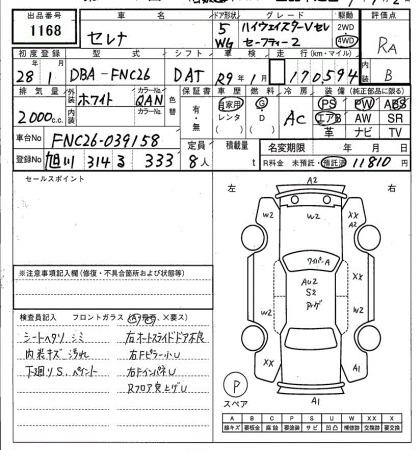 出品番号 車名 ドア形状 グレード 駆動 評価点
1168 セレナ 5 WG ハイウェイスターVセレ セーフティー2 2WD 4WD RA
初度登録 型式 シフト 車検 走行(km・マイル) 内装
28年1月 DBA-FNC26 DAT R9年1月 170594 B
排気量 外装 カラーNo. 色替 保証書 車歴 燃料 冷房 装備(純正部品に限る)
2000c.c. ホワイト QAN 有・無 自家用 レンタ G D AC PS PW ABS
内装 カラーNo. エアB AW SR
革 ナビ TV
車台No FNC26-039158 定員 積載量 名変期限 年 月 日
登録No 旭川 314 ろ 333 8人 t R料金 未預託・預託済 11810 円
セールスポイント
左 右
A2
W2 W2 XX A2
ワイパーA
AU2
S2
W2 W2
XX XX
A1 A1
P
スペア
※注意事項記入欄(修復・不具合箇所および状態等)
検査員記入 フロントガラス(A飛石、×要ス)
シートヘタリ、シミ 右オートスライドドア不良
内装キズ 汚れ 右FピラーU
下廻りS、ペイント 右FインパネU
Rフロア突上ゲU
A B C P S U W X XX
線キズ 要板金 腐蝕 要塗装 サビ 凹凸 補修跡 要交換 交換跡